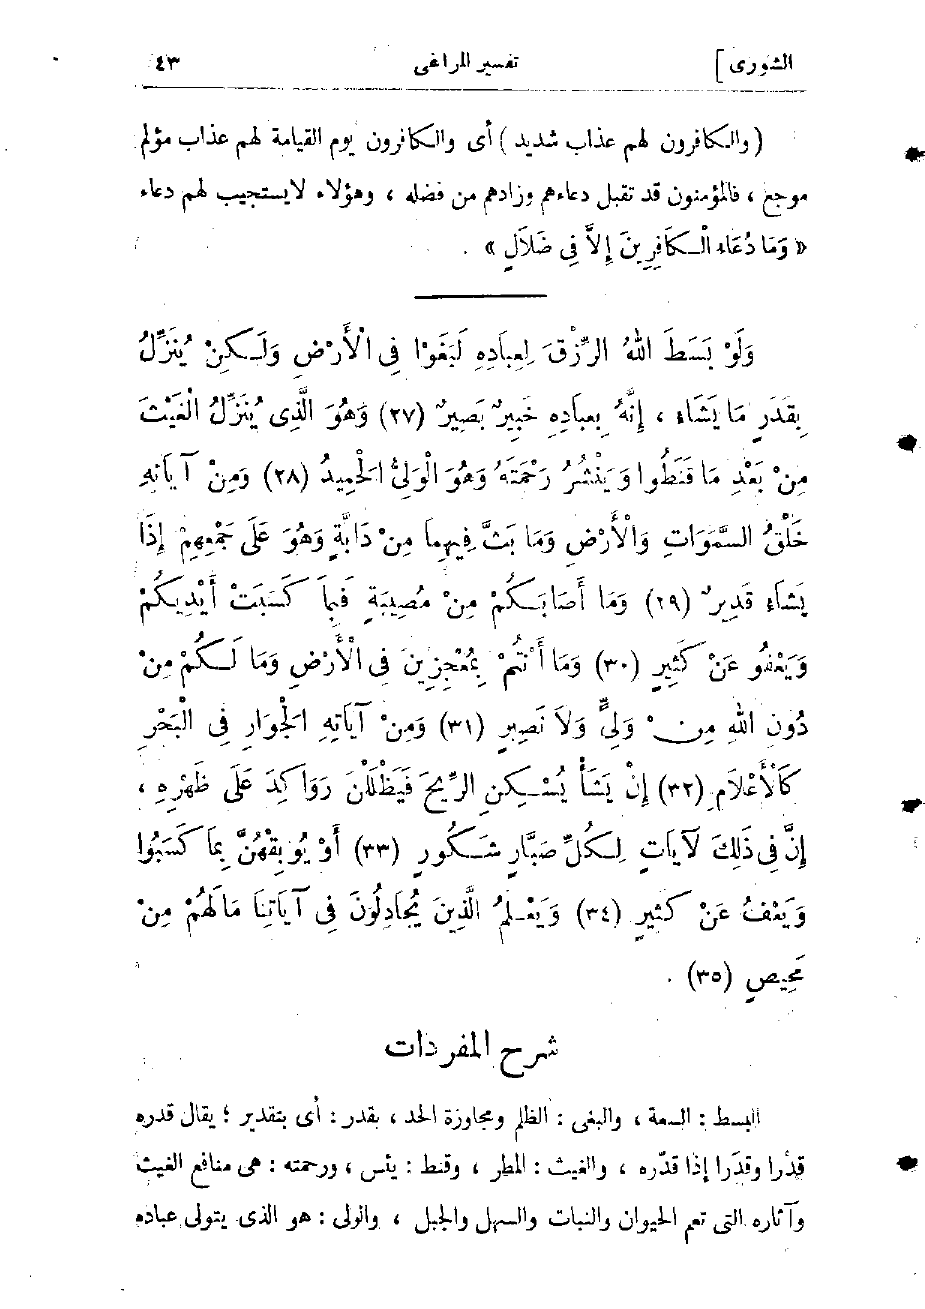 الشورى] تفسير المراغى ٤٣
( والكافرون لهم عذاب شديد ) أى والكافرون يوم القيامة لهم عذاب مؤلم
موجع ، فالمؤمنون قد تقبل دعاءهم وزادهم من فضله ، وهؤلاء لا يستجيب لهم دعاء
« وَمَا دُعَاءُ الْكَافِرِينَ إِلاَّ فِى ضَلاَلٍ » .
وَلَوْ بَسَطَ اللهُ الرِّزْقَ لِعِبَادِهِ لَبَغَوْا فِى الْأَرْضِ وَلَكِنْ يُنَزِّلُ
بِقَدَرٍ مَا يَشَاءُ ، إِنَّهُ بِعِبَادِهِ خَبِيرٌ بَصِيرٌ (٢٧) وَهُوَ الَّذِى يُنَزِّلُ الْغَيْثَ
مِنْ بَعْدِ مَا قَنَطُوا وَيَنْشُرُ رَحْمَتَهُ وَهُوَ الْوَلِىُّ الْحَمِيدُ (٢٨) وَمِنْ آيَاتِهِ
خَلْقُ السَّمَوَاتِ وَالْأَرْضِ وَمَا بَثَّ فِيهِمَا مِنْ دَابَّةٍ وَهُوَ عَلَى جَمْعِهِمْ إِذَا
يَشَاءُ قَدِيرٌ (٢٩) وَمَا أَصَابَكُمْ مِنْ مُصِيبَةٍ فَبِمَا كَسَبَتْ أَيْدِيكُمْ
وَيَعْفُو عَنْ كَثِيرٍ (٣٠) وَمَا أَنْتُمْ بِمُعْجِزِينَ فِى الْأَرْضِ وَمَا لَكُمْ مِنْ
دُونِ اللهِ مِنْ وَلِىٍّ وَلاَ نَصِيرٍ (٣١) وَمِنْ آيَاتِهِ الْجَوَارِ فِى الْبَحْرِ
كَالْأَعْلاَمِ (٣٢) إِنْ يَشَأْ يُسْكِنِ الرِّيحَ فَيَظْلَلْنَ رَوَاكِدَ عَلَى ظَهْرِهِ ،
إِنَّ فِى ذَلِكَ لَآيَاتٍ لِكُلِّ صَبَّارٍ شَكُورٍ (٣٣) أَوْ يُوبِقْهُنَّ بِمَا كَسَبُوا
وَيَعْفُ عَنْ كَثِيرٍ (٣٤) وَيَعْلَمُ الَّذِينَ يُجَادِلُونَ فِى آيَاتِنَا مَا لَهُمْ مِنْ
مَحِيصٍ (٣٥) .
شرح المفردات
البسط : السعة ، والبغى : الظلم ومجاوزة الحد ، بقدر : أى بتقدير ؛ يقال قدره
قدْرا وقدَرا إذا قدّره ، والغيث : المطر ، وقنط : يئس ، ورحمته : هى منافع الغيث
وآثاره التى تعم الحيوان والنبات والسهل والجبل ، والولى : هو الذى يتولى عباده